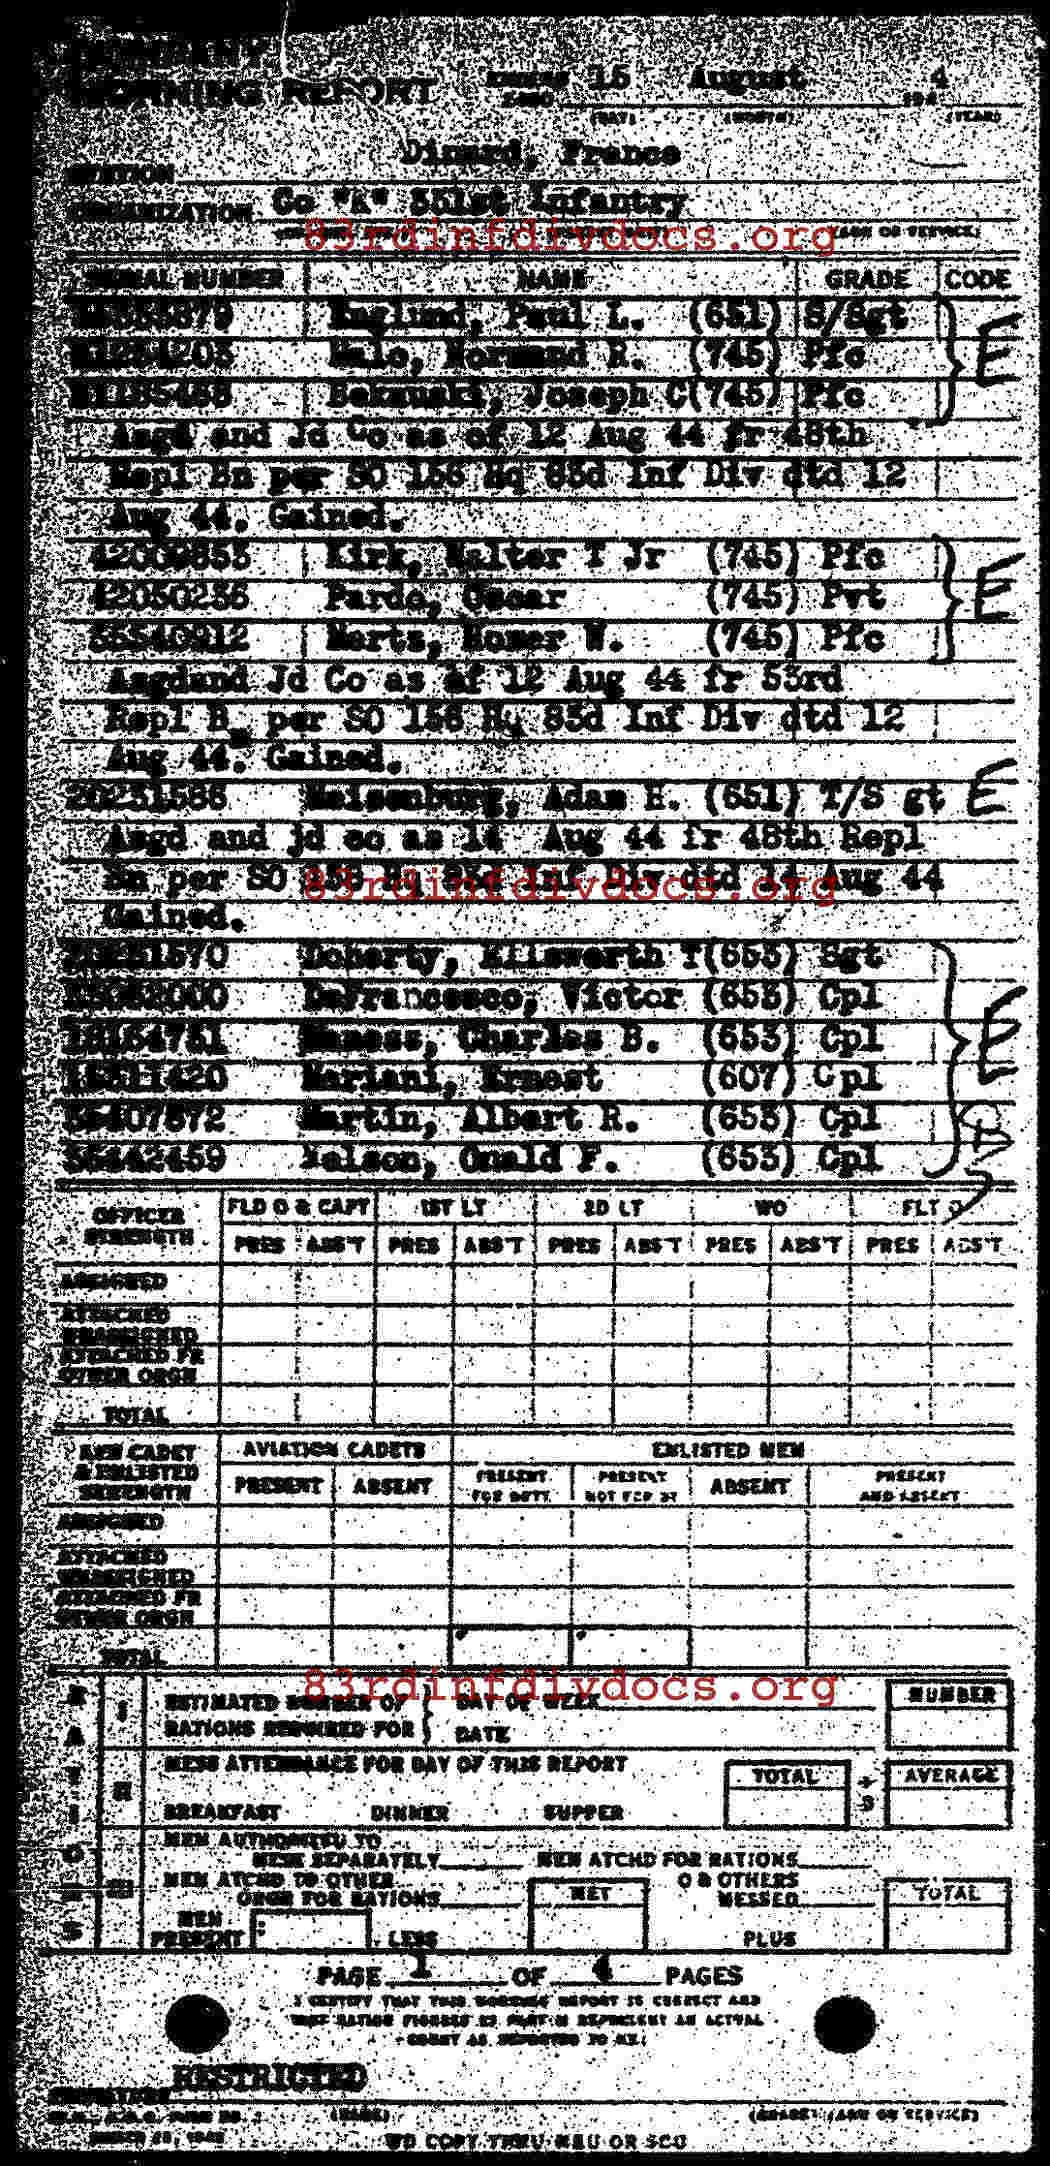 COMPANY
MORNING REPORT
ENDING 15 August 194 4
(DAY) (MONTH) (YEAR)
STATION Dinard, France
ORGANIZATION Co "A" 331st Infantry
83rdinfdivdocs.org
(ARM OR SERVICE)
SERIAL NUMBER NAME GRADE CODE
Englund, Paul L. (651) S/Sgt
Malo, Normand R. (745) Pfc E
Joseph C(745) Pfc
Asgd and Jd Co as of 12 Aug 44 fr 48th
Repl Bn per SO 156 Hq 83d Inf Div dtd 12
Aug 44. Gained.
Kirk, Walter T Jr (745) Pfc
42030236 Pardo, Oscar (745) Pvt E
Mertz, Homer W. (745) Pfc
Asgdand Jd Co as of 12 Aug 44 fr 53rd
Repl B per SO 156 Hq 83d Inf Div dtd 12
Aug 44. Gained.
20231586 Meisenburg, Adam H. (651) T/S gt E
Asgd and jd co as 14 Aug 44 fr 48th Repl
Bn per SO Inf Div dtd 14 Aug 44
83rdinfdivdocs.org
Gained.
Doherty, Ellsworth T(653) Sgt
DeFrancesco, Victor (653) Cpl
Maness, Charles B. (653) Cpl E
Mariani, Ernest (607) Cpl
Martin, Albert R. (653) Cpl
36442459 Nelson, Onald F. (653) Cpl
OFFICER STRENGTH FLD O & CAPT 1ST LT 2D LT WO FLT O
PRES ABS'T PRES ABS'T PRES ABS'T PRES ABS'T PRES ABS'T
ASSIGNED
ATTACHED UNASSIGNED
ATTACHED FR OTHER ORGN
TOTAL
AVN CADET & ENLISTED STRENGTH AVIATION CADETS ENLISTED MEN
PRESENT ABSENT PRESENT FOR DUTY PRESENT NOT FOR DY ABSENT PRESENT AND ABSENT
ASSIGNED
ATTACHED UNASSIGNED
ATTACHED FR OTHER ORGN
TOTAL
83rdinfdivdocs.org
RATIONS
I ESTIMATED NUMBER OF RATIONS REQUIRED FOR DAY OF WEEK DATE NUMBER
II MESS ATTENDANCE FOR DAY OF THIS REPORT TOTAL ÷ 3 AVERAGE
BREAKFAST DINNER SUPPER
III MEN AUTHORIZED TO
MESS SEPARATELY MEN ATCHD FOR RATIONS
MEN ATCHD TO OTHER ORGN FOR RATIONS NET O & OTHERS MESSED TOTAL
MEN PRESENT LESS PLUS
PAGE 1 OF 4 PAGES
I CERTIFY THAT THIS MORNING REPORT IS CORRECT AND
THAT RATION FIGURES IN PART III REPRESENT AN ACTUAL
COUNT AS REPORTED TO ME.
RESTRICTED
SIGNATURE
(NAME) (GRADE) (ARM OR SERVICE)
WD COPY THRU MRU OR SCU